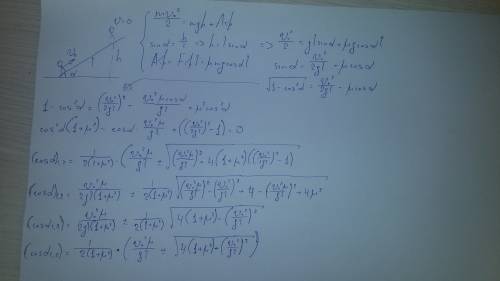 v=0
v₀
α
h
mv₀²/2 = mgh + Aтр
sinα = h/l => h = l sinα => v₀²/2 = glsinα + μgcosαl
Aтр = Fтрl = μmgcosαl
sinα = v₀²/2gl - μcosα
√(1-cos²α) = v₀²/2gl - μcosα
1 - cos²α = (v₀²/2gl)² - v₀²μcosα/gl + μ²cos²α
cos²α(1+μ²) - cosα · v₀²μ/gl + ((v₀²/2gl)² - 1) = 0
(cosα)₁,₂ = 1/2(1+μ²) · (v₀²μ/gl ± √((v₀²μ/gl)² - 4(1+μ²)((v₀²/2gl)² - 1)
(cosα)₁,₂ = v₀²μ/2gl(1+μ²) ± 1/2(1+μ²) √((v₀²μ/gl)² - (v₀²/gl)² + 4 - (v₀²μ/gl)² + 4μ²
(cosα)₁,₂ = v₀²μ/2gl(1+μ²) ± 1/2(1+μ²) √(4(1+μ²) - (v₀²/gl)²
(cosα)₁,₂ = 1/2(1+μ²) · (v₀²μ/gl ± √(4(1+μ²) - (v₀²/gl)²)